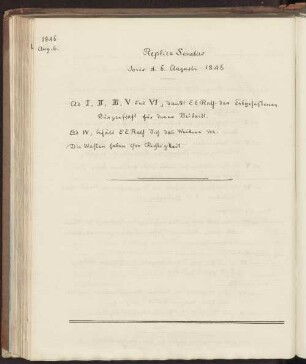 1846
Aug. 6.
Replica Senatus
Jovis d. 6. Augusti 1846
Ad I, II, III, V und VI, dankt E E Rath der Erbgesessenen
Bürgerschaft für deren Beitritt.
Ad IV, behält E E Rath sich das Weitere vor.
Die Wahlen haben ihre Richtigkeit.